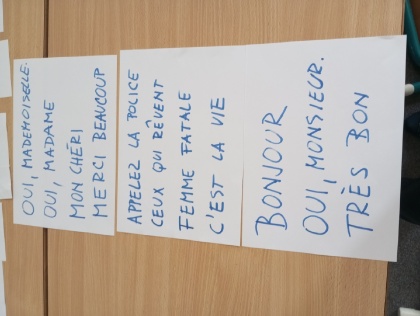 OUI, MADEMOISELLE.
OUI, MADAME
MON CHÉRI
MERCI BEAUCOUP
APPELEZ LA POLICE
CEUX QUI RÊVENT
FEMME FATALE
C'EST LA VIE
BONJOUR
OUI, MONSIEUR.
TRÈS BON